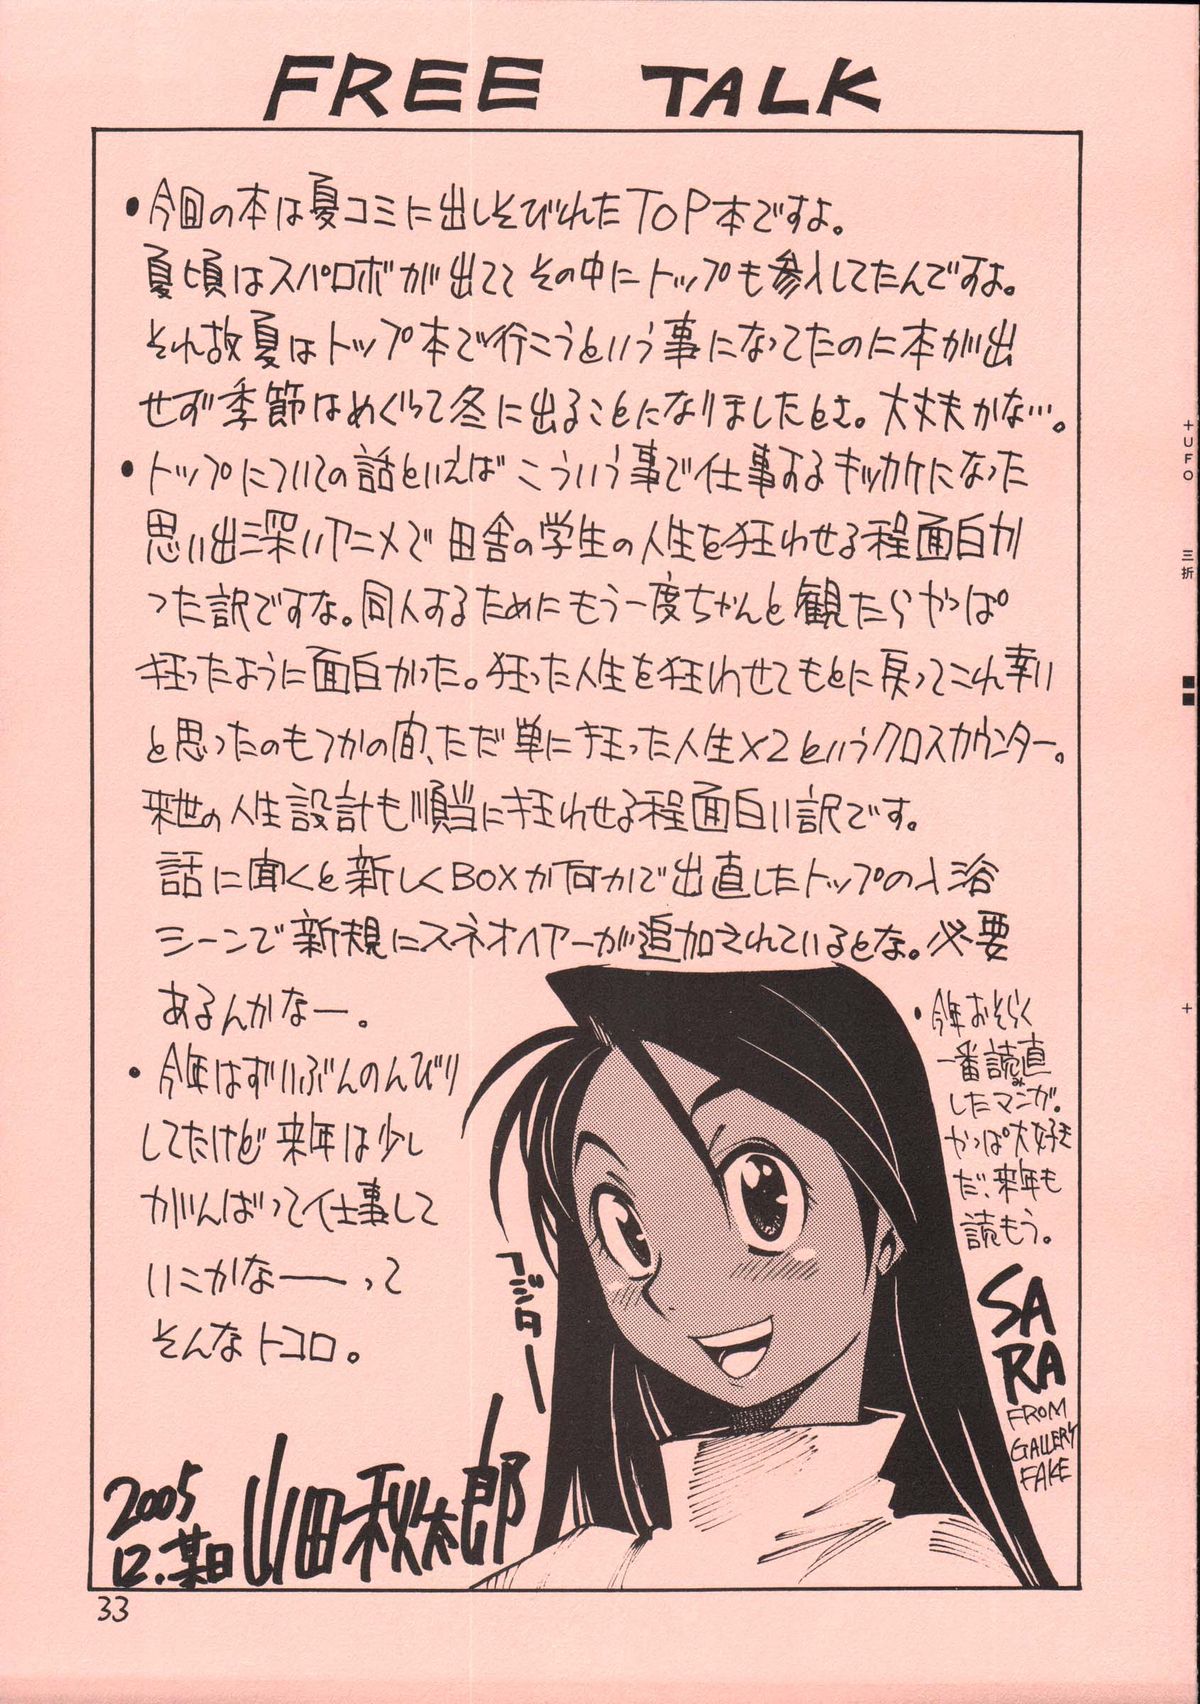 FREE TALK
・今回の本は夏コミに出しそびれたTOP本ですよ。
夏頃はスパロボが出ててその中にトップも参入してたんですよ。
それ故夏はトップ本で行こうという事になってたのに本が出
せず季節はめぐって冬に出ることになりましたとさ。大丈夫かな…。
・トップについての話といえばこういう事で仕事するキッカケになった
思い出深いアニメで田舎の学生の人生を狂わせる程面白か
った訳ですな。同人するためにもう一度ちゃんと観たらやっぱ
狂ったように面白かった。狂った人生を狂わせてもとに戻ってこれ幸い
と思ったのもつかの間、ただ単に狂った人生×2というクロスカウンター。
来世の人生設計も順当に狂わせる程面白い訳です。
話に聞くと新しくBOXか何かで出直したトップの入浴
シーンで新規にスネオヘアーが追加されているとな。必要
あるんかなー。
・今年はずいぶんのんびり
してたけど来年は少し
がんばって仕事して
いこかなーって
そんなトコロ。
・今年おそらく
一番読み直
したマンガ。
やっぱ大好き
だ、来年も
読もう。
SA
RA
FROM
GALLERY
FAKE
フジター
2005
12.某日 山田秋太郎
33
+UFO 三折